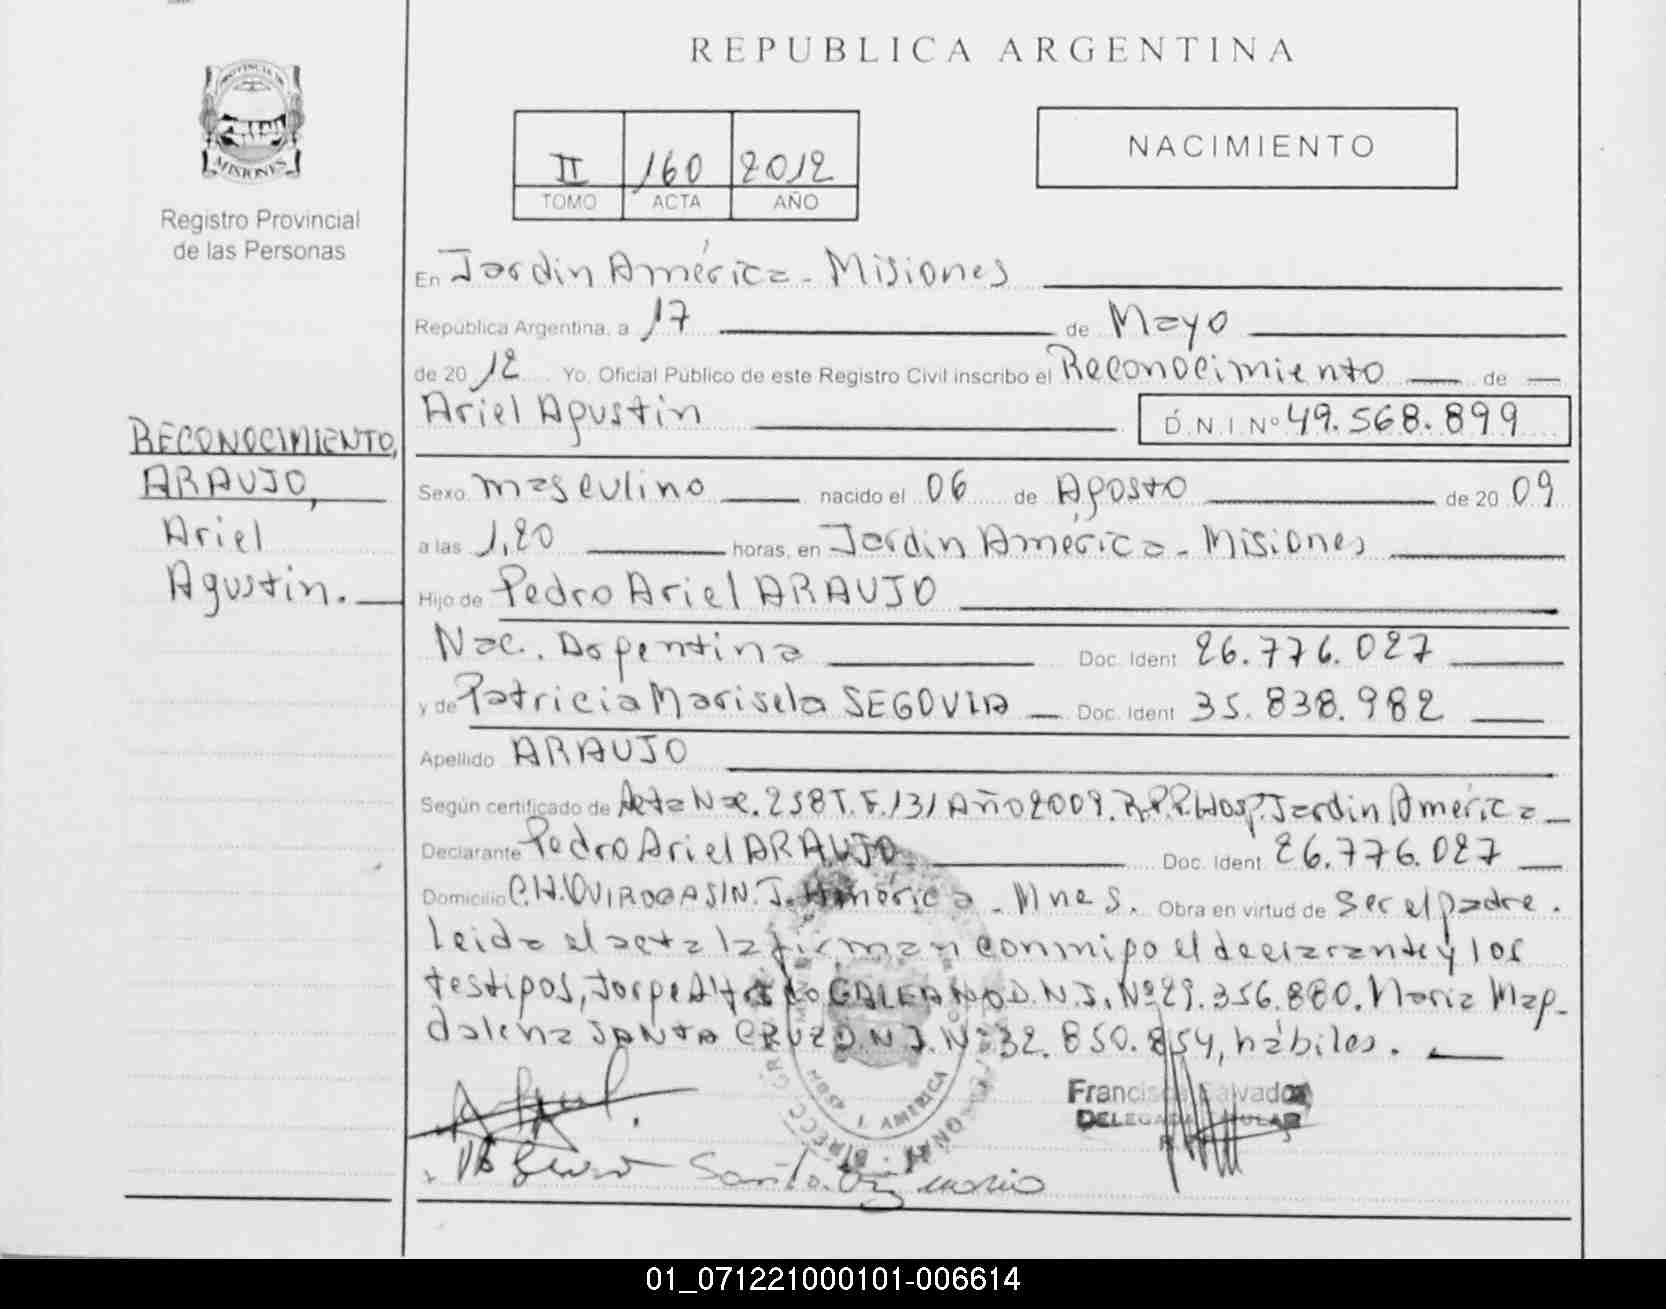 REPUBLICA ARGENTINA
PROVINCIA DE
MISIONES
Registro Provincial
de las Personas
II 160 2012
TOMO ACTA AÑO
NACIMIENTO
En Jardin América - Misiones
República Argentina, a 17 de Mayo
de 2012 Yo, Oficial Público de este Registro Civil inscribo el Reconocimiento de
Ariel Agustin D.N.I Nº 49.568.899
RECONOCIMIENTO,
ARAUJO,
Ariel
Agustin.
Sexo masculino nacido el 06 de Agosto de 2009
a las 1,20 horas, en Jardin América - Misiones
Hijo de Pedro Ariel ARAUJO
Nac. Argentina Doc. Ident 26.776.027
y de Patricia Marisela SEGOVIA Doc. Ident 35.838.982
Apellido ARAUJO
Según certificado de Acta Nac. 258 T. F. 131 Año 2009. R.P.P. Hosp. Jardin América
Declarante Pedro Ariel ARAUJO Doc. Ident. 26.776.027
Domicilio C.H. QUIROGA S/N. J. América - Mnes. Obra en virtud de ser el padre.
Leida el acta la firman conmigo el declarante y los
testigos, Jorge Alfredo GALEANO D.N.I. Nº 29.356.880. Maria Mag-
dalena SANTA CRUZ D.N.I. Nº 32.850.854, hábiles.
Salvador
J. AMERICA
01_071221000101-006614